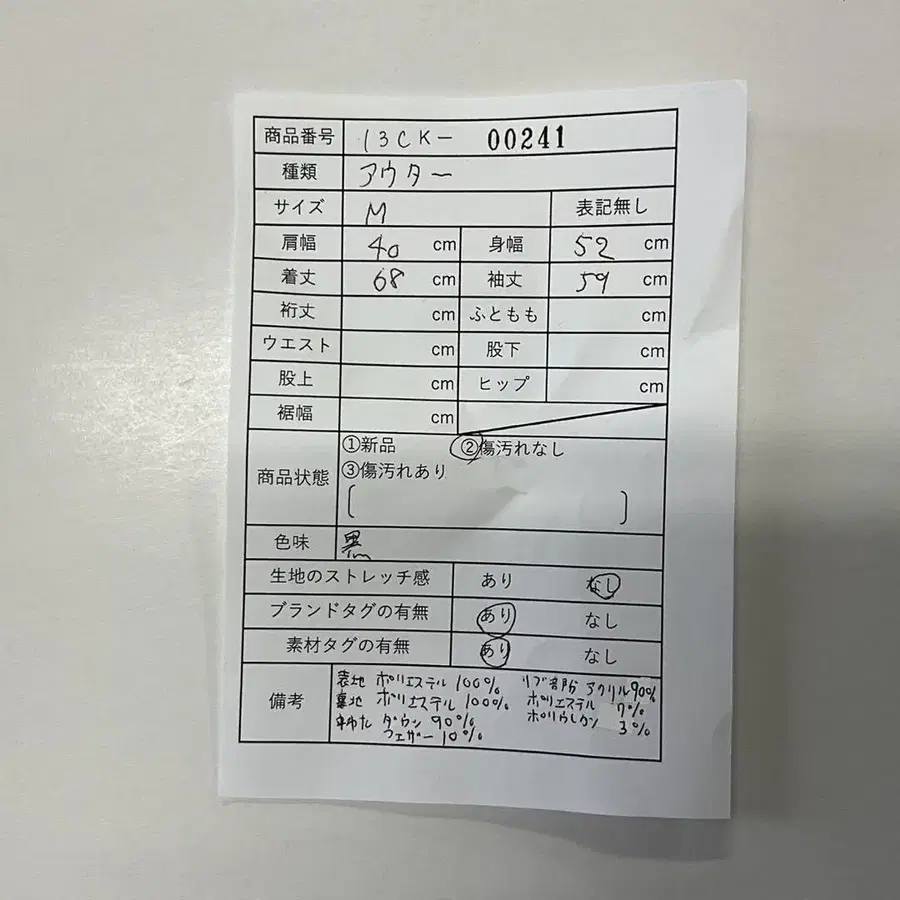 商品番号 13CK- 00241
種類 アウター
サイズ M 表記無し
肩幅 40 cm 身幅 52 cm
着丈 68 cm 袖丈 59 cm
裄丈 cm ふともも cm
ウエスト cm 股下 cm
股上 cm ヒップ cm
裾幅 cm
商品状態 ①新品 ②傷汚れなし
③傷汚れあり
色味 黒
生地のストレッチ感 あり なし
ブランドタグの有無 あり なし
素材タグの有無 あり なし
備考
表地 ポリエステル 100% リブ部分 アクリル90%
裏地 ポリエステル 100% ポリエステル 7%
中わた ダウン 90% ポリウレタン 3%
フェザー 10%